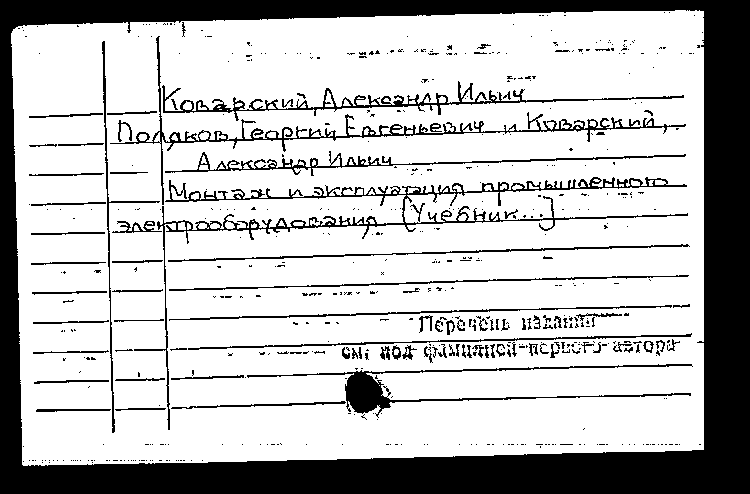 Коварский, Александр Ильич
Поляков, Георгий Евгеньевич и Коварский,
Александр Ильич
Монтаж и эксплуатация промышленного
электрооборудования [Учебник...]
Перечень изданий
см. под фамилией первого автора